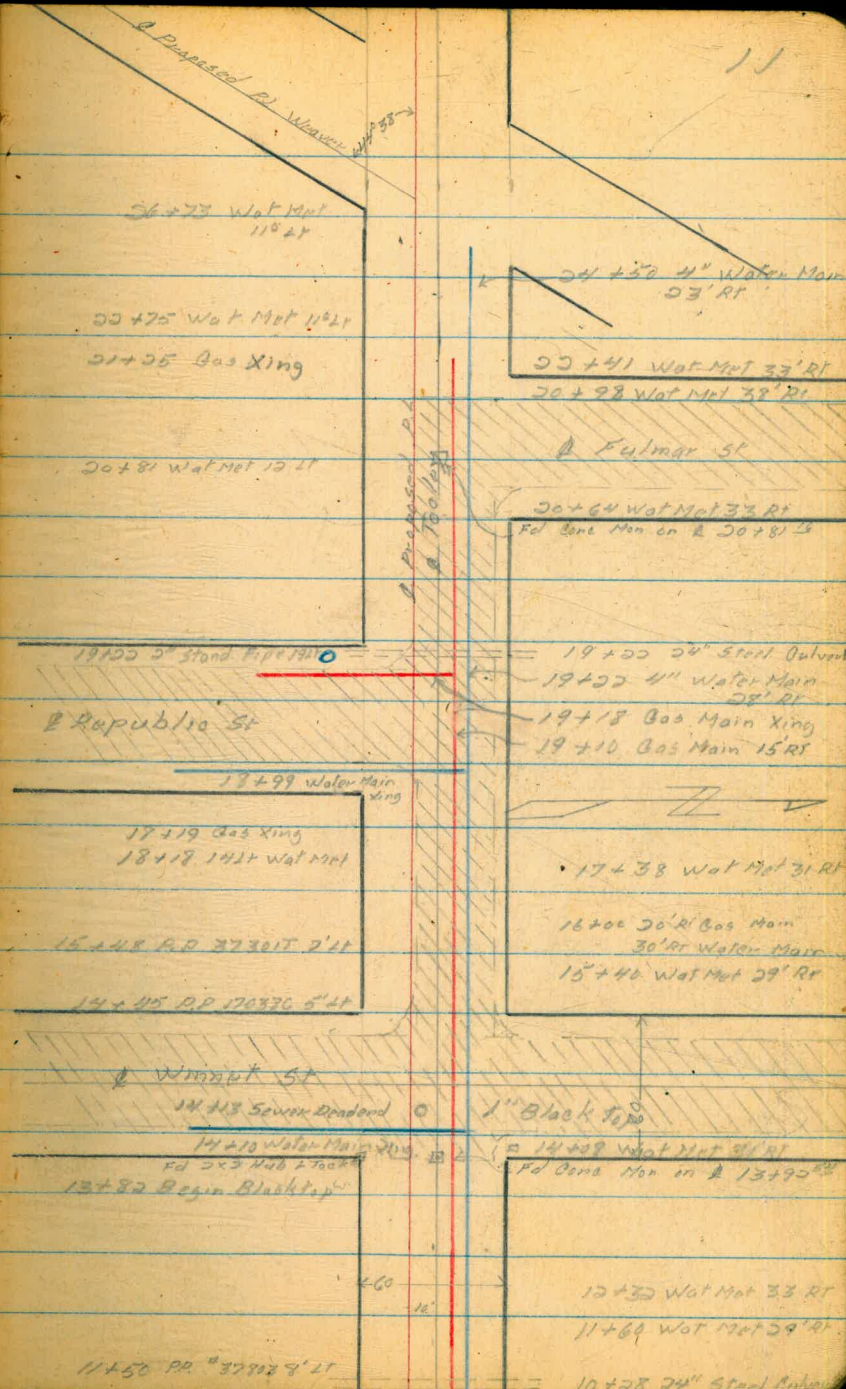 11
℄ Proposed P.L. Weaver
44° 38'
26+73 Wat Met
11° Lt
24+50 4" Water Main
23' Rt
22+75 Wat Met 11° Lt
21+25 Gas Xing
22+41 Wat Met 33' Rt
20+98 Wat Met 38' Rt
℄ Fulmar St
20+81 Wat Met 12 Lt
℄ Proposed P.L.
℄ Tooley
20+64 Wat Met 33 Rt
Fd Conc Mon on ℄ 20+81
19+22 2" Stand Pipe 19 Lt
19+22 24" Steel Culvert
19+22 4" Water Main
28' Rt
℄ Republic St
19+18 Gas Main Xing
19+10 Gas Main 15' Rt
18+99 Water Main
Xing
17+19 Gas Xing
18+18 14 Lt Wat Met
17+38 Wat Met 31 Rt
16+00 20' Rt Gas Main
30' Rt Water Main
15+48 P.P. 37301T 7' Lt
15+40 Wat Met 29' Rt
14+45 P.P. 17037C 5' Lt
℄ Winnet St
14+13 Sewer Deadend
1" Black Top
60
14+10 Water Main Xing
14+08 Wat Met 31' Rt
Fd 2x2 Hub & Tack
Fd Conc Mon on ℄ 13+92
13+82 Begin Blacktop
60
10'
12+32 Wat Met 33 Rt
11+60 Wat Met 29' Rt
11+50 P.P. #37803 8' Lt
10+28 24" Steel Culver